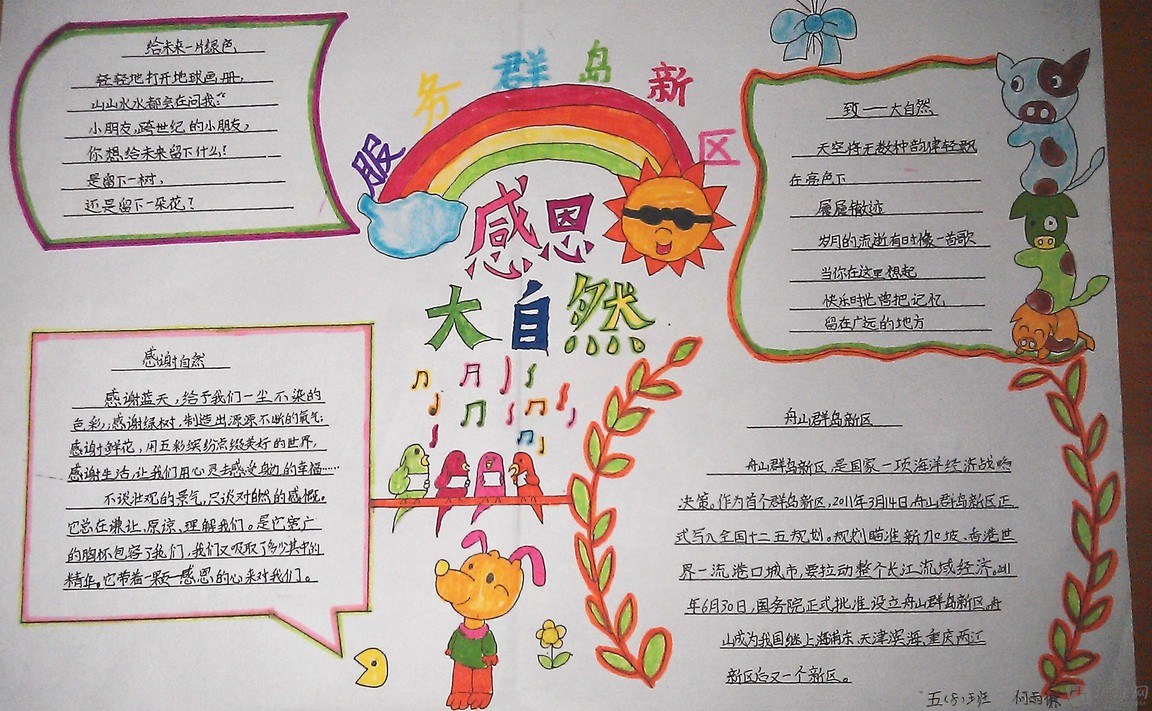 服务群岛新区
感恩
大自然
给未来一片绿色
轻轻地打开地球画册,
山山水水都会在问我:"
小朋友,跨世纪的小朋友,
你想给未来留下什么!
是留下一树,
还是留下一朵花?
致——大自然
天空将无数种韵律轻飘
在亮色下
层层撤迹
岁月的流逝有时像一首歌
当你在这里想起
快乐时忙将把记忆
留在广远的地方
感谢自然
感谢蓝天,给予我们一尘不染的
色彩;感谢绿树,制造出源源不断的氧气;
感谢鲜花,用五彩缤纷点缀美好的世界,
感谢生活,让我们用心灵去感受身边的幸福……
不谈壮观的景气,只谈对自然的感慨。
它总在谦让、原谅、理解我们。是它宽广
的胸怀包容了我们,我们又吸取了多少其中的
精华。它带着一颗感恩的心来对我们。
舟山群岛新区
舟山群岛新区是国家一项海洋经济战略
决策。作为首个群岛新区,2011年3月14日,舟山群岛新区正
式写入全国十二五规划。规划瞄准新加坡、香港世
界一流港口城市,要拉动整个长江流域经济。2011
年6月30日,国务院正式批准设立舟山群岛新区,舟
山成为我国继上海浦东、天津滨海、重庆两江
新区后又一个新区。
五(5)班 何雨